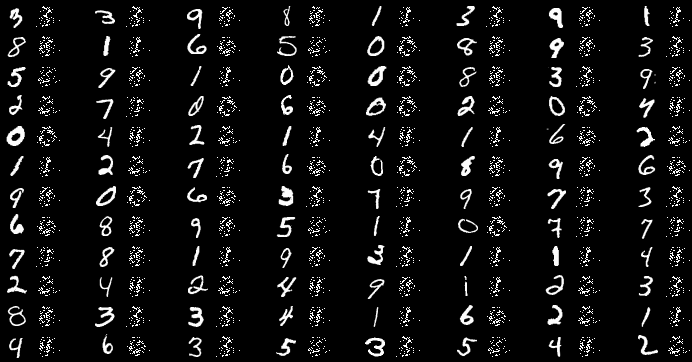 3 3 9 8 1 3 9 1
8 1 6 5 0 8 9 3
5 9 1 0 0 8 3 9
2 7 0 6 0 2 0 4
0 4 2 1 4 1 6 2
1 2 7 6 0 8 9 6
9 0 6 3 7 9 7 3
6 8 9 5 1 0 7 7
7 8 1 9 3 1 1 4
2 4 2 4 9 1 2 3
8 3 3 4 1 6 2 1
4 6 3 5 3 5 4 2